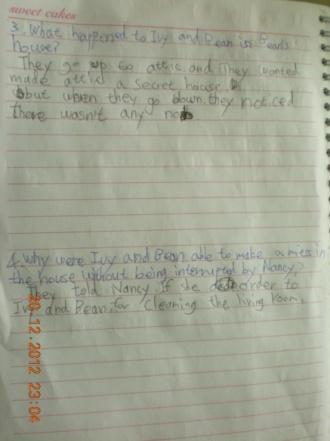 sweet cakes
3. What happened to Ivy and Bean in Bean's
house?
They go up to attic and They wanted
made attic a secret house
but when they go down they noticed
there wasn't any
4. Why were Ivy and Bean able to make a mess in
the house without being interrupted by Nancy?
They told Nancy If she order to
Ivy and Bean for cleaning the living room.
20.12.2012 23:04